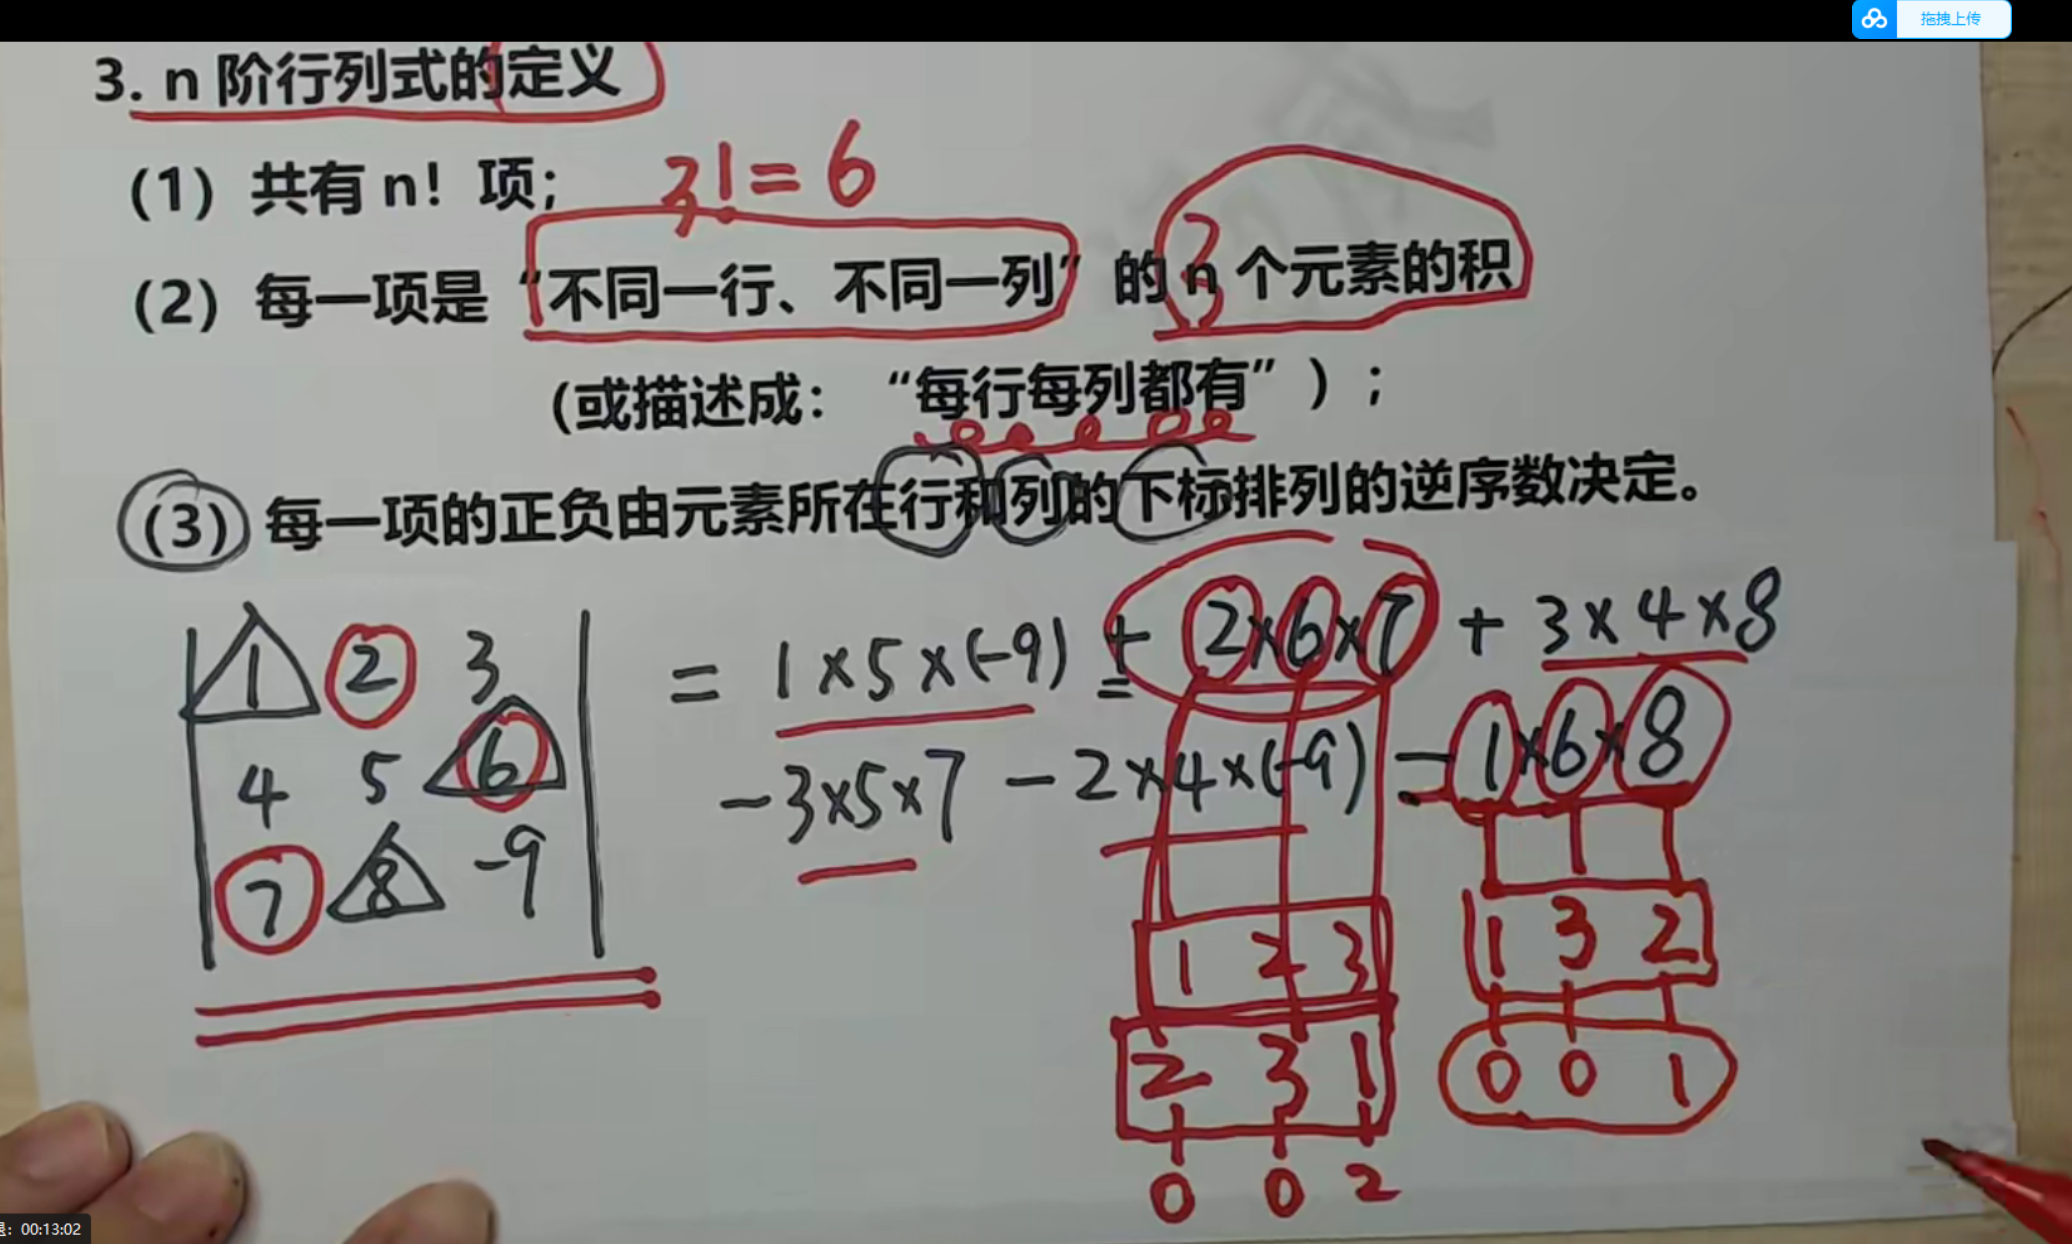 拖拽上传
3. n 阶行列式的定义
(1) 共有 n! 项; 3!=6
(2) 每一项是“不同一行、不同一列”的 n 个元素的积
3
(或描述成：“每行每列都有”)；
(3) 每一项的正负由元素所在行和列的下标排列的逆序数决定。
1 2 3 = 1×5×(-9) + 2×6×7 + 3×4×8
4 5 6 -3×5×7 - 2×4×(-9) - 1×6×8
7 8 -9
1 2 3 1 3 2
2 3 1 0 0 1
0 0 2
00:13:02